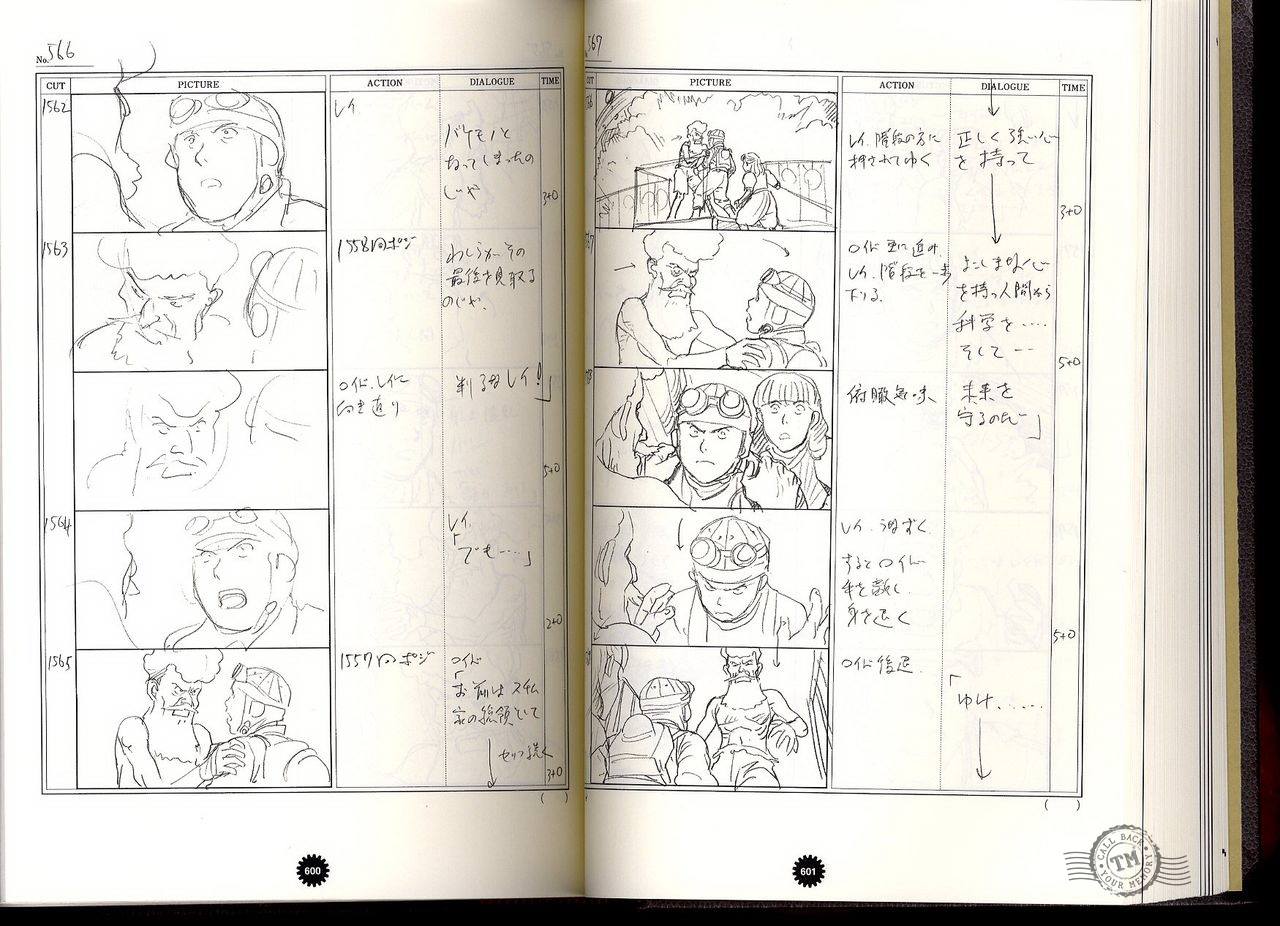 No.566
CUT PICTURE ACTION DIALOGUE TIME
1562
レイ
バケモノと
なってしまったの
じゃ
3+0
1563
1558 同ポジ
わしらがその
最後を見取る
のじゃ.
ロイド、レイに
向き直り
判るなレイ!」
5+0
1564
レイ
「でも…」
2+0
1565
1557 同ポジ
ロイド
「お前はスチム
家の総領として
セリフ続く
3+0
( )
600
567
CUT PICTURE ACTION DIALOGUE TIME
レイ、階段の方に
押されてゆく
正しく強い心
を持って
3+0
ロイド更に進み、
レイ、階段を一歩
下りる.
よこしまな心
を持つ人間から
科学を….
そして…
5+0
俯瞰気味
未来を
守るのだ」
レイ、うなずく
するとロイド
手を離し、
身を退く
5+0
ロイド後退.
「ゆけ......
( )
601
CALL BACK
TM
YOUR MEMORY